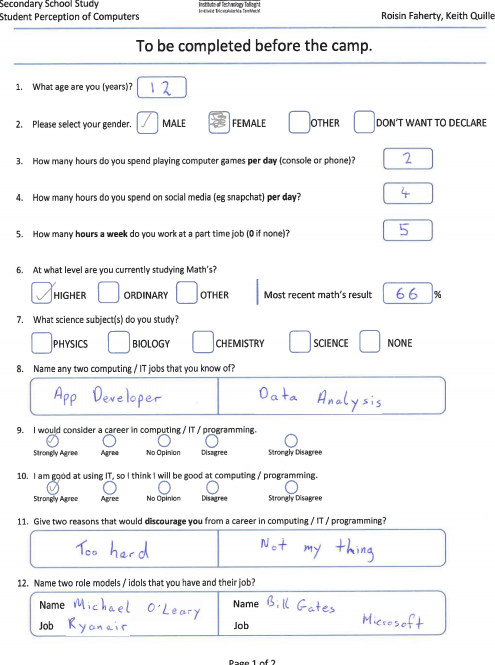 Secondary School Study
Student Perception of Computers
Institute of Technology Tallaght
Roisin Faherty, Keith Quille
To be completed before the camp.
1. What age are you (years)? 12
2. Please select your gender. MALE FEMALE OTHER DON'T WANT TO DECLARE
3. How many hours do you spend playing computer games per day (console or phone)? 2
4. How many hours do you spend on social media (eg snapchat) per day? 4
5. How many hours a week do you work at a part time job (0 if none)? 5
6. At what level are you currently studying Math's?
HIGHER ORDINARY OTHER Most recent math's result 66 %
7. What science subject(s) do you study?
PHYSICS BIOLOGY CHEMISTRY SCIENCE NONE
8. Name any two computing / IT jobs that you know of?
App Developer Data Analysis
9. I would consider a career in computing / IT / programming.
Strongly Agree Agree No Opinion Disagree Strongly Disagree
10. I am good at using IT, so I think I will be good at computing / programming.
Strongly Agree Agree No Opinion Disagree Strongly Disagree
11. Give two reasons that would discourage you from a career in computing / IT / programming?
Too hard Not my thing
12. Name two role models / idols that you have and their job?
Name Michael O'Leary Name Bill Gates
Job Ryanair Job Microsoft
Page 1 of 2